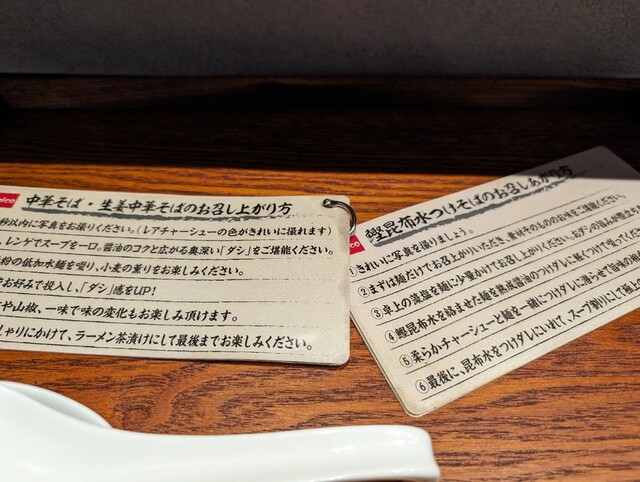 中華そば・生姜中華そばのお召し上がり方
秒以内に写真をお撮りください。（レアチャーシューの色がきれいに撮れます）
、レンゲでスープを一口。醤油のコクと広がる奥深い「ダシ」をご堪能ください。
粉の低加水麺を啜り、小麦の薫りをお楽しみください。
お好みで投入し、「ダシ」感をUP!
や山椒、一味で味の変化もお楽しみ頂けます。
しゃりにかけて、ラーメン茶漬けにして最後までお楽しみください。
鰹昆布水つけそばのお召しあがり方
①きれいに写真を撮りましょう。
②まずは麺だけでお召上がりいただき、蕎麦そのもののお味をご堪能ください。
③卓上の藻塩を麺に少量かけてお召し上がりください。お
④鰹昆布水を絡ませた麺を熟成醤油のつけダレに軽くつけて啜って
⑤柔らかチャーシューと麺を一緒につけダレに潜らせて旨味の
⑥最後に、昆布水をつけダレにいれて、スープ割りにして極上の